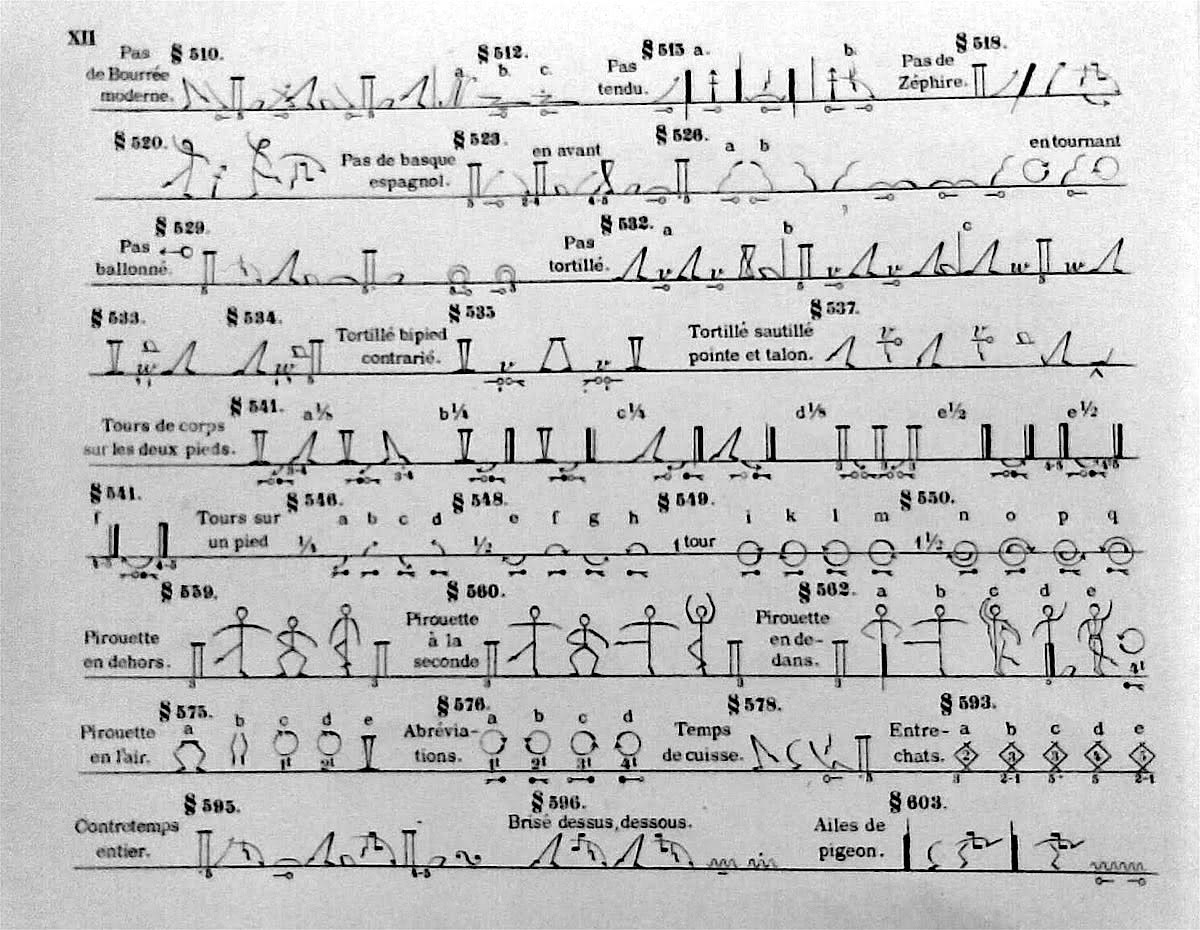 XII
Pas de Bourrée moderne. § 510. § 512. a. b. c. Pas tendu. § 515 a. b. Pas de Zéphire. § 518.
§ 520. Pas de basque espagnol. § 523. en avant § 526. a b en tournant
5 2-4 4-5 5
Pas ballonné. § 529. Pas tortillé. § 532. a b c
§ 533. § 534. Tortillé bipied contrarié. § 535 Tortillé sautillé pointe et talon. § 537.
Tours de corps sur les deux pieds. § 541. a 1/8 b 1/4 c 1/4 d 1/8 e 1/2 e 1/2
§ 541. f Tours sur un pied § 546. 1/4 a b c d § 548. 1/2 e f g h § 549. 1 tour i k l m § 550. 1 1/2 n o p q
Pirouette en dehors. § 559. Pirouette à la seconde § 560. Pirouette en de- dans. § 562. a b c d e
3 3 3 3 3 4t
Pirouette en l'air. § 575. a b c d e Abrévia- tions. § 576. a b c d Temps de cuisse. § 578. Entre- chats. § 593. a b c d e
1t 2t 1t 2t 3t 4t 3 2-1 5 5 2-1
Contretemps entier. § 595. Brisé dessus, dessous. § 596. Ailes de pigeon. § 603.
5 4-5